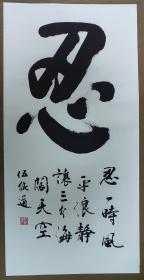 忍
忍一時風
平浪靜
讓三分海
闊天空